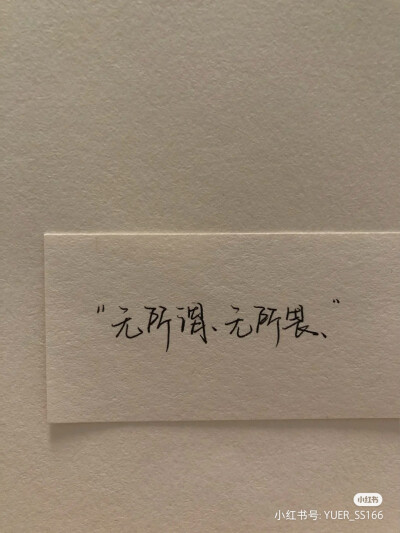 "无所谓、无所畏、"
小红书
小红书号: YUER_SS166